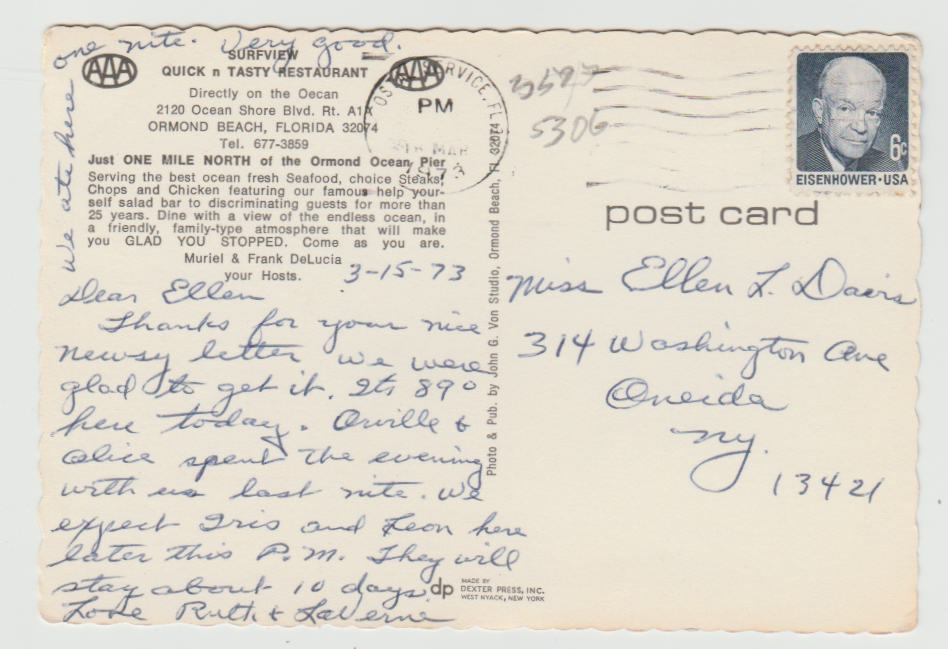 We ate here
one nite. Very good.
AAA
AAA
SURFVIEW
QUICK n TASTY RESTAURANT
Directly on the Oecan
2120 Ocean Shore Blvd. Rt. A1A
ORMOND BEACH, FLORIDA 32074
Tel. 677-3859
Just ONE MILE NORTH of the Ormond Ocean Pier
Serving the best ocean fresh Seafood, choice Steaks,
Chops and Chicken featuring our famous help your-
self salad bar to discriminating guests for more than
25 years. Dine with a view of the endless ocean, in
a friendly, family-type atmosphere that will make
you GLAD YOU STOPPED. Come as you are.
Muriel & Frank DeLucia
your Hosts.
3-15-73
Dear Ellen
Thanks for your nice
newsy letter we were
glad to get it. Its 89°
here today. Orville &
Alice spent the evening
with us last nite. We
expect Iris and Leon here
later this P.M. They will
stay about 10 days.
Love Ruth & LaVerne
Photo & Pub. by John G. Von Studio, Ormond Beach, Fl 32074
dp
MADE BY
DEXTER PRESS, INC.
WEST NYACK, NEW YORK
POSTAL SERVICE, FL
PM
MAR
1973
5306
6c
EISENHOWER·USA
post card
Miss Ellen L. Davis
314 Washington Ave
Oneida
N.y.
13421